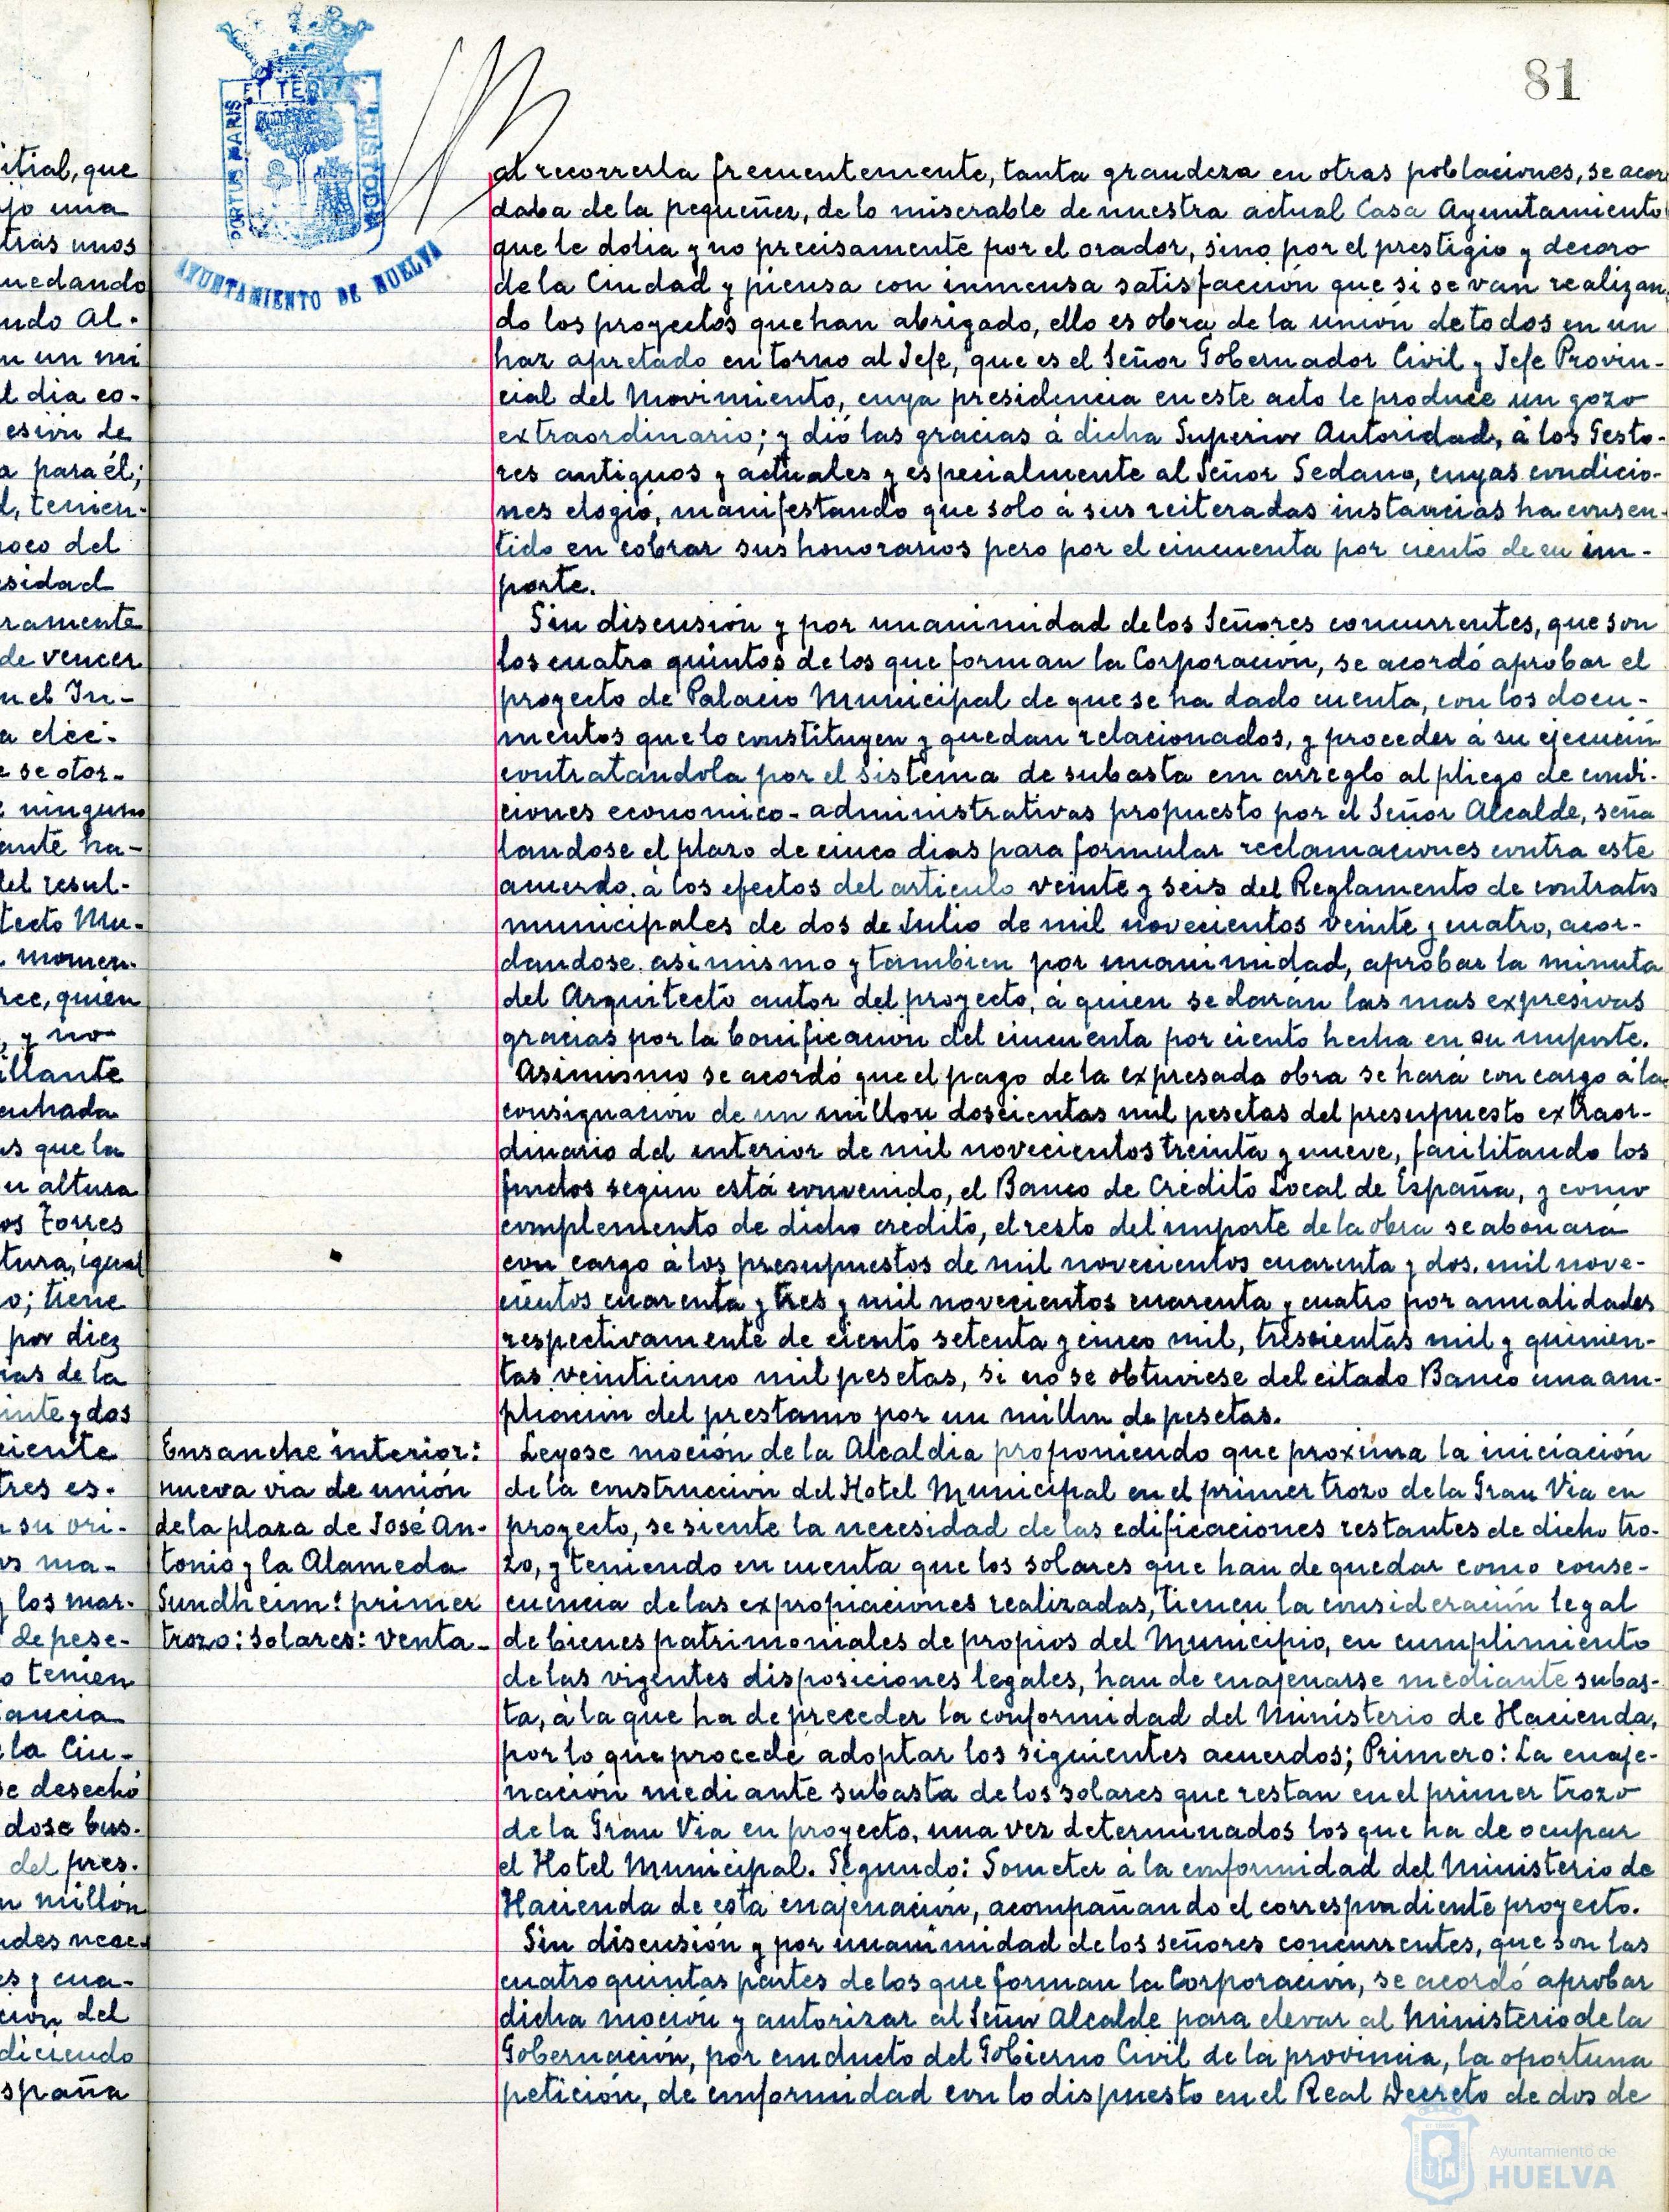 81
PORTUS MARIS ET TERRÆ CUSTODIA
AYUNTAMIENTO DE HUELVA
itial, que
jo una
tras unos
uedando
ndo Al-
n un mi
l dia co-
esión de
a para él;
d, tenien-
oco del
sidad
ramente
de vencer
n el In-
a elec-
e se otor-
e ninguno
ante ha-
del resul-
tecto Mu-
momen-
rce, quien
, y no
illante
cuhada
s que la
u altura
os torres
tura, igual
o; tiene
por diez
ias de la
inte y dos
ciente
tres es-
n su ori-
os ma-
y los mar-
de pese-
o tenien
tancia
la Ciu-
se desechó
dose bus-
del pres-
n millón
ades nece-
es y cua-
cion del
diciendo
spaña
al recorrerla frecuentemente, tanta grandeza en otras poblaciones, se acor
daba de la pequeñez, de lo miserable de nuestra actual Casa Ayuntamiento
que le dolia y no precisamente por el orador, sino por el prestigio y decoro
de la Ciudad y piensa con inmensa satisfacción que si se van realizan
do los proyectos que han abrigado, ello es obra de la unión de todos en un
haz apretado en torno al Jefe, que es el Señor Gobernador Civil y Jefe Provin-
cial del Movimiento, cuya presidencia en este acto le produce un gozo
extraordinario; y dió las gracias á dicha Superior Autoridad, á los Gesto-
res antiguos y actuales y especialmente al Señor Sedano, cuyas condicio-
nes elogió, manifestando que solo á sus reiteradas instancias ha consen-
tido en cobrar sus honorarios pero por el cincuenta por ciento de su im-
porte.
Sin discusión y por unanimidad de los Señores concurrentes, que son
los cuatro quintos de los que forman la Corporación, se acordó aprobar el
proyecto de Palacio Municipal de que se ha dado cuenta, con los docu-
mentos que lo constituyen y quedan relacionados, y proceder á su ejecución
contratandola por el sistema de subasta con arreglo al pliego de condi-
ciones economico-administrativas propuesto por el Señor Alcalde, seña
landose el plazo de cinco dias para formular reclamaciones contra este
acuerdo, á los efectos del articulo veinte y seis del Reglamento de contratos
municipales de dos de Julio de mil novecientos veinte y cuatro, acor-
dandose, asimismo y tambien por unanimidad, aprobar la minuta
del Arquitecto autor del proyecto, á quien se darán las mas expresivas
gracias por la bonificación del cincuenta por ciento hecha en su importe.
Asimismo se acordó que el pago de la expresada obra se hará con cargo á la
consignación de un millon doscientas mil pesetas del presupuesto extraor-
dinario del interior de mil novecientos treinta y nueve, facilitando los
fondos segun está convenido, el Banco de Credito Local de España, y como
complemento de dicho credito, el resto del importe de la obra se abonará
con cargo á los presupuestos de mil novecientos cuarenta y dos, mil nove-
cientos cuarenta y tres y mil novecientos cuarenta y cuatro por anualidades
respectivamente de ciento setenta y cinco mil, trescientas mil y quinien-
tas veinticinco mil pesetas, si no se obtuviese del citado Banco una am-
pliación del prestamo por un millon de pesetas.
Ensanche interior:
nueva via de unión
de la plaza de José An-
tonio y la Alameda
Sundheim: primer
trozo: Solares: venta-
Leyose moción de la Alcaldia proponiendo que proxima la iniciación
de la construcción del Hotel Municipal en el primer trozo de la Gran Via en
proyecto, se siente la necesidad de las edificaciones restantes de dicho tro-
zo, y teniendo en cuenta que los solares que han de quedar como conse-
cuencia de las expropiaciones realizadas, tienen la consideración legal
de bienes patrimoniales de propios del Municipio, en cumplimiento
de las vigentes disposiciones legales, han de enajenarse mediante subas-
ta, á la que ha de preceder la conformidad del Ministerio de Hacienda,
por lo que procede adoptar los siguientes acuerdos; Primero: La enaje-
nación mediante subasta de los solares que restan en el primer trozo
de la Gran Via en proyecto, una vez determinados los que ha de ocupar
el Hotel Municipal. Segundo: Someter á la conformidad del Ministerio de
Hacienda de esta enajenación, acompañando el correspondiente proyecto.
Sin discusión y por unanimidad de los señores concurrentes, que son las
cuatro quintas partes de los que forman la Corporación, se acordó aprobar
dicha moción y autorizar al Señor Alcalde para elevar al Ministerio de la
Gobernación, por conducto del Gobierno Civil de la provincia, la oportuna
petición, de conformidad con lo dispuesto en el Real Decreto de dos de
Ayuntamiento de
HUELVA